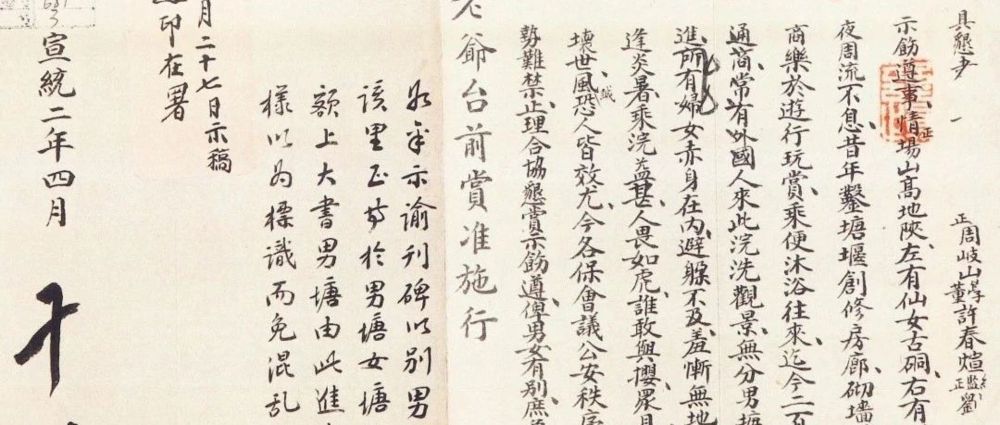 具懇予一正周岐山學董許春煊監正劉
示飭遵事情場山高地陝左有仙女古硐右有
正
夜周流不息昔年鑿塘堰創修房廊砌墻
商樂於遊行玩賞乘便沐浴往來迄今二百
通商常有外國人來此浣洗觀景無分男塘
進所有婦女赤身在內避躲不及羞慚無地
逢炎暑乘浣益甚人畏如虎誰敢與攖眾具
誠
壞世風恐人皆效尤今各保會議公安秩序
勢難禁止理合協懇賞示飭遵俾男女有別庶
老爺台前賞准施行
示諭刊碑以別男
該里正等於男塘女塘
額上大書男塘由此進
樣以為標識而免混乱
月二十七日示稿
印在署
宣統二年四月